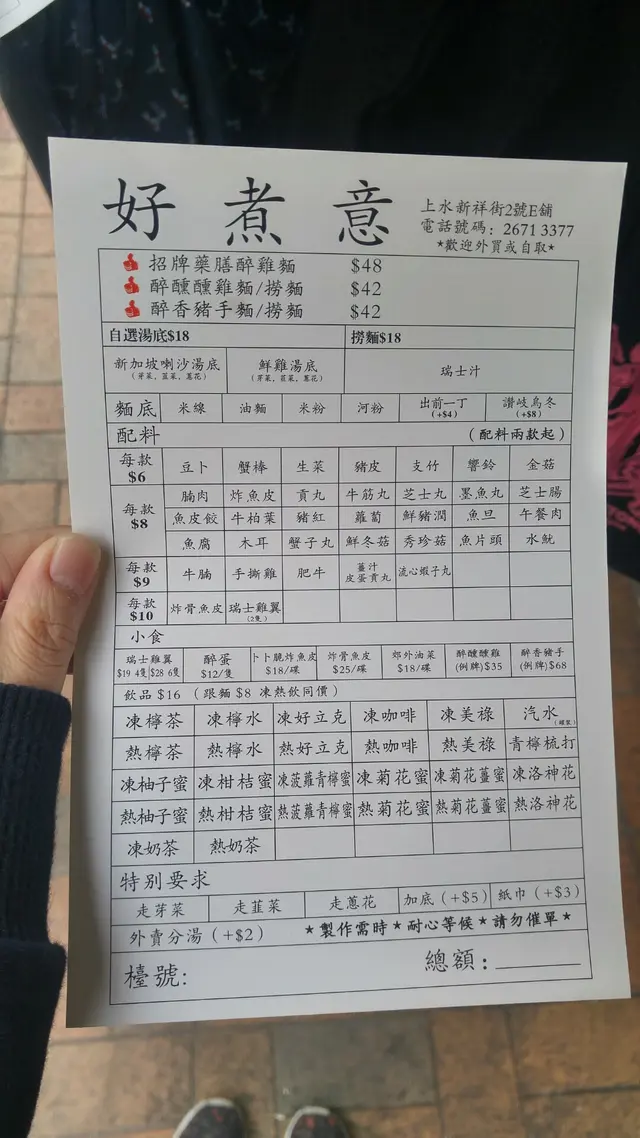 好煮意
上水新祥街2號E舖
電話號碼: 2671 3377
*歡迎外買或自取*
招牌藥膳醉雞麵 $48
醉醺醺雞麵/撈麵 $42
醉香豬手麵/撈麵 $42
自選湯底$18 撈麵$18
新加坡喇沙湯底 鮮雞湯底 瑞士汁
(芽菜, 韮菜, 蔥花) (芽菜, 韮菜, 蔥花)
麵底 米線 油麵 米粉 河粉 出前一丁 (+$4) 讚岐烏冬 (+$8)
配料 (配料兩款起)
每款 $6 豆卜 蟹棒 生菜 豬皮 支竹 響鈴 金菇
每款 $8 腩肉 炸魚皮 貢丸 牛筋丸 芝士丸 墨魚丸 芝士腸
魚皮餃 牛柏葉 豬紅 蘿蔔 鮮豬潤 魚旦 午餐肉
魚腐 木耳 蟹子丸 鮮冬菇 秀珍菇 魚片頭 水魷
每款 $9 牛腩 手撕雞 肥牛 薑汁皮蛋貢丸 流心蝦子丸
每款 $10 炸骨魚皮 瑞士雞翼 (2隻)
小食
瑞士雞翼 醉蛋 卜卜脆炸魚皮 炸骨魚皮 郊外油菜 醉醺醺雞 醉香豬手
$19 4隻 $28 6隻 $12/隻 $18/碟 $25/碟 $18/碟 (例牌)$35 (例牌)$68
飲品 $16 (跟麵 $8 凍熱飲同價)
凍檸茶 凍檸水 凍好立克 凍咖啡 凍美祿 汽水 (罐裝)
熱檸茶 熱檸水 熱好立克 熱咖啡 熱美祿 青檸梳打
凍柚子蜜 凍柑桔蜜 凍菠蘿青檸蜜 凍菊花蜜 凍菊花薑蜜 凍洛神花
熱柚子蜜 熱柑桔蜜 熱菠蘿青檸蜜 熱菊花蜜 熱菊花薑蜜 熱洛神花
凍奶茶 熱奶茶
特別要求
走芽菜 走韮菜 走蔥花 加底 (+$5) 紙巾 (+$3)
外賣分湯 (+$2) *製作需時*耐心等候*請勿催單*
檯號: 總額: